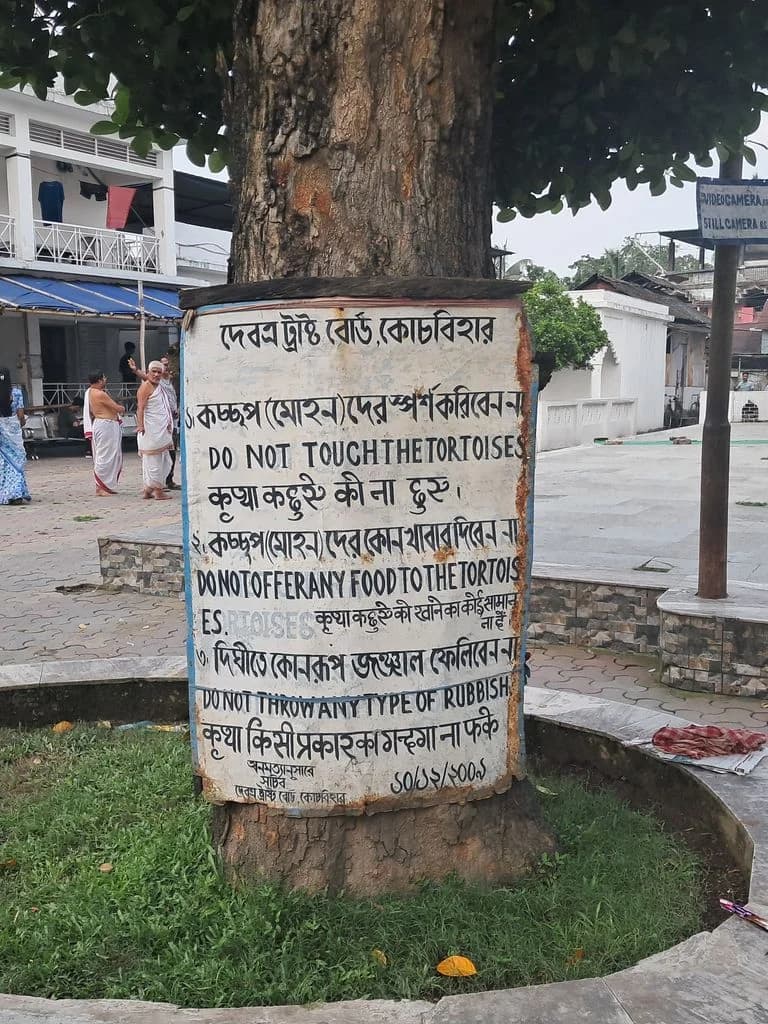 দেবত্র ট্রাষ্ট বোর্ড, কোচবিহার
১। কচ্ছপ (মোহন) দের স্পর্শ করিবেন না
DO NOT TOUCH THE TORTOISES
কৃথা কছুए की ना छुए।
২। কচ্ছপ (মোহন) দের কোন খাবার দিবেন না
DO NOT OFFER ANY FOOD TO THE TORTOIS
ES. TORTOISES कृथा कछुए की खाने का कोई सामान
ना दें
৩। দিঘীতে কোনরূপ জঞ্জাল ফেলিবেন না
DO NOT THROW ANY TYPE OF RUBBISH
कृथा किसी प्रकार का गन्दगा ना फके
অনুমত্যানুসারে
সচিব
দেবত্র ট্রাস্ট বোর্ড, কোচবিহার
১০/১২/২০০৯
VIDEO CAMERA
STILL CAMERA